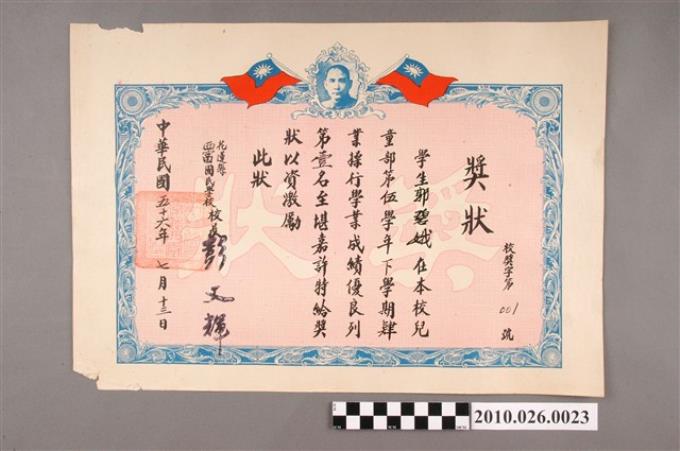 獎狀
校獎字第001號
學生郭碧娥在本校兒
童部第伍學年下學期肄
業操行學業成績優良列
第壹名至堪嘉許特給獎
狀以資激勵
此狀
花蓮縣
西富國民學校校長彭文輝
中華民國五十六年七月十三日
獎狀
2010.026.0023